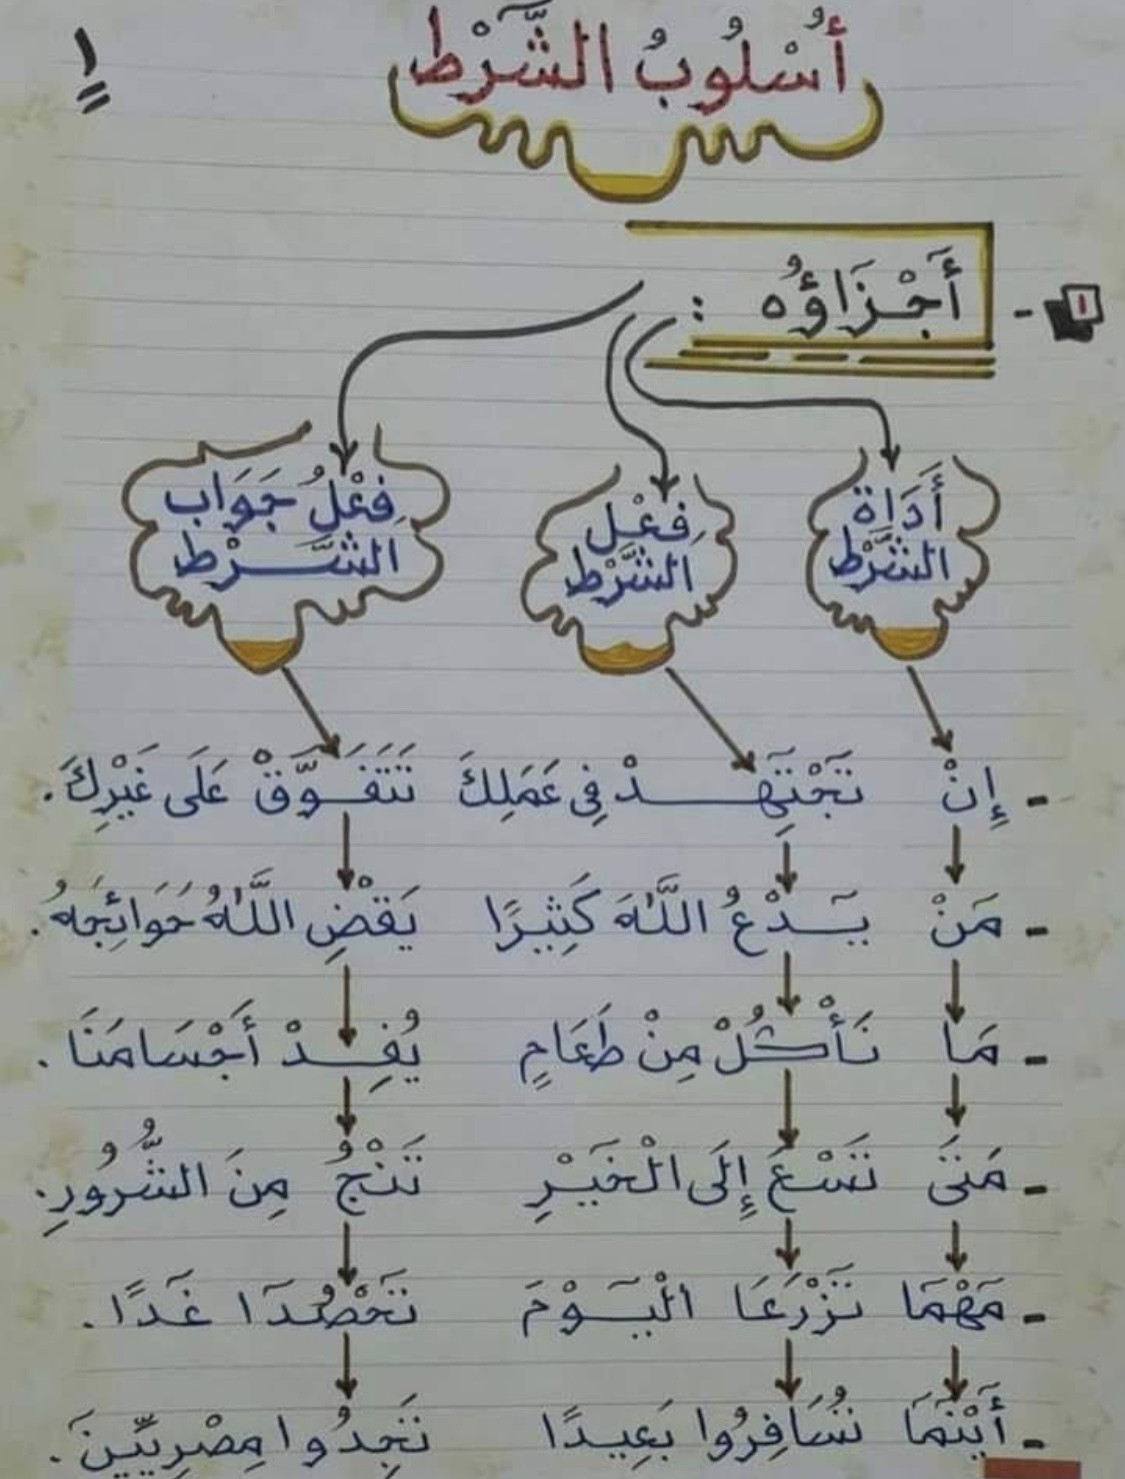 أُسْلُوبُ الشَّرْطِ
١
١ - أَجْزَاؤُهُ :
أَدَاةُ الشَّرْطِ
فِعْلُ الشَّرْطِ
فِعْلُ جَوَابِ الشَّرْطِ
- إِنْ تَجْتَهِدْ فِي عَمَلِكَ تَتَفَوَّقْ عَلَى غَيْرِكَ.
- مَنْ يَدْعُ اللَّهَ كَثِيرًا يَقْضِ اللَّهُ حَوَائِجَهُ.
- مَا نَأْكُلْ مِنْ طَعَامٍ يُفِدْ أَجْسَامَنَا.
- مَتَى تَسْعَ إِلَى الْخَيْرِ تَنْجُ مِنَ الشُّرُورِ.
- مَهْمَا تَزْرَعَا الْيَوْمَ تَحْصُدَا غَدًا.
- أَيْنَمَا تُسَافِرُوا بَعِيدًا تَجِدُوا مِصْرِيِّينَ.